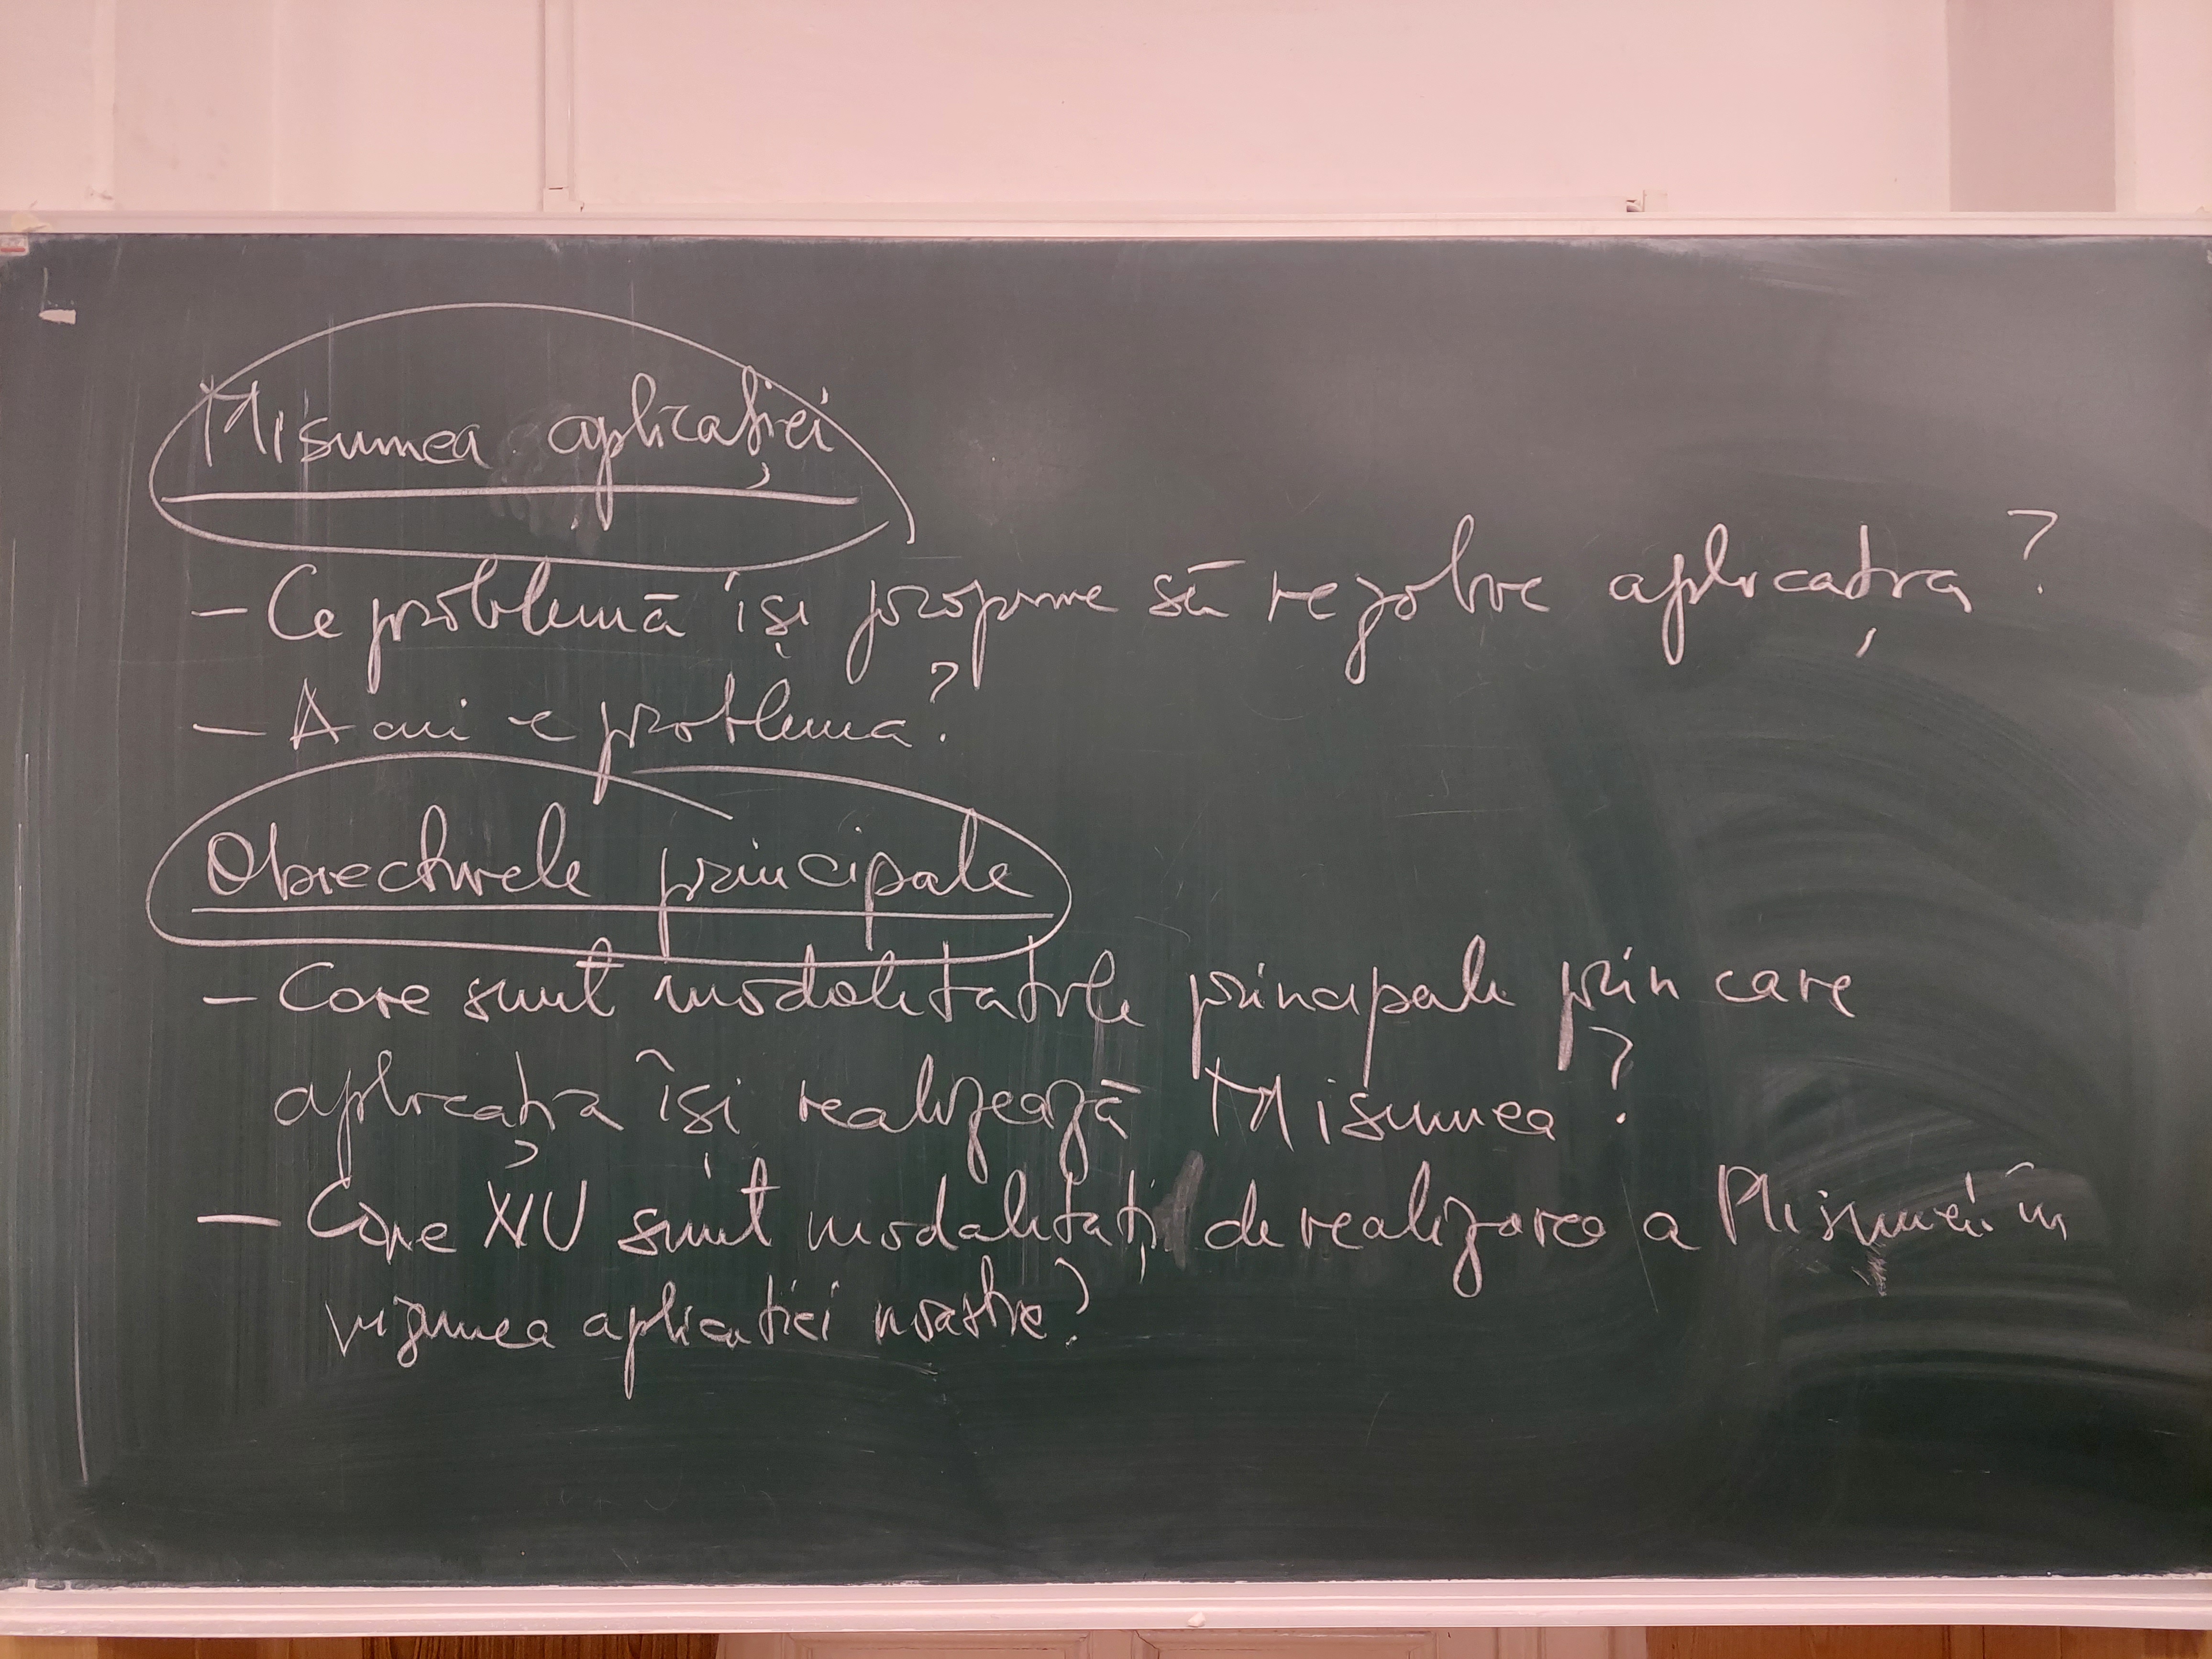 Misiunea aplicației
- Ce problemă își propune să rezolve aplicația?
- A cui e problema?
Obiectivele principale
- Care sunt modalitățile principale prin care
aplicația își realizează Misiunea?
- Care NU sunt modalități de realizarea a Misiunii în
viziunea aplicatiei noastre?